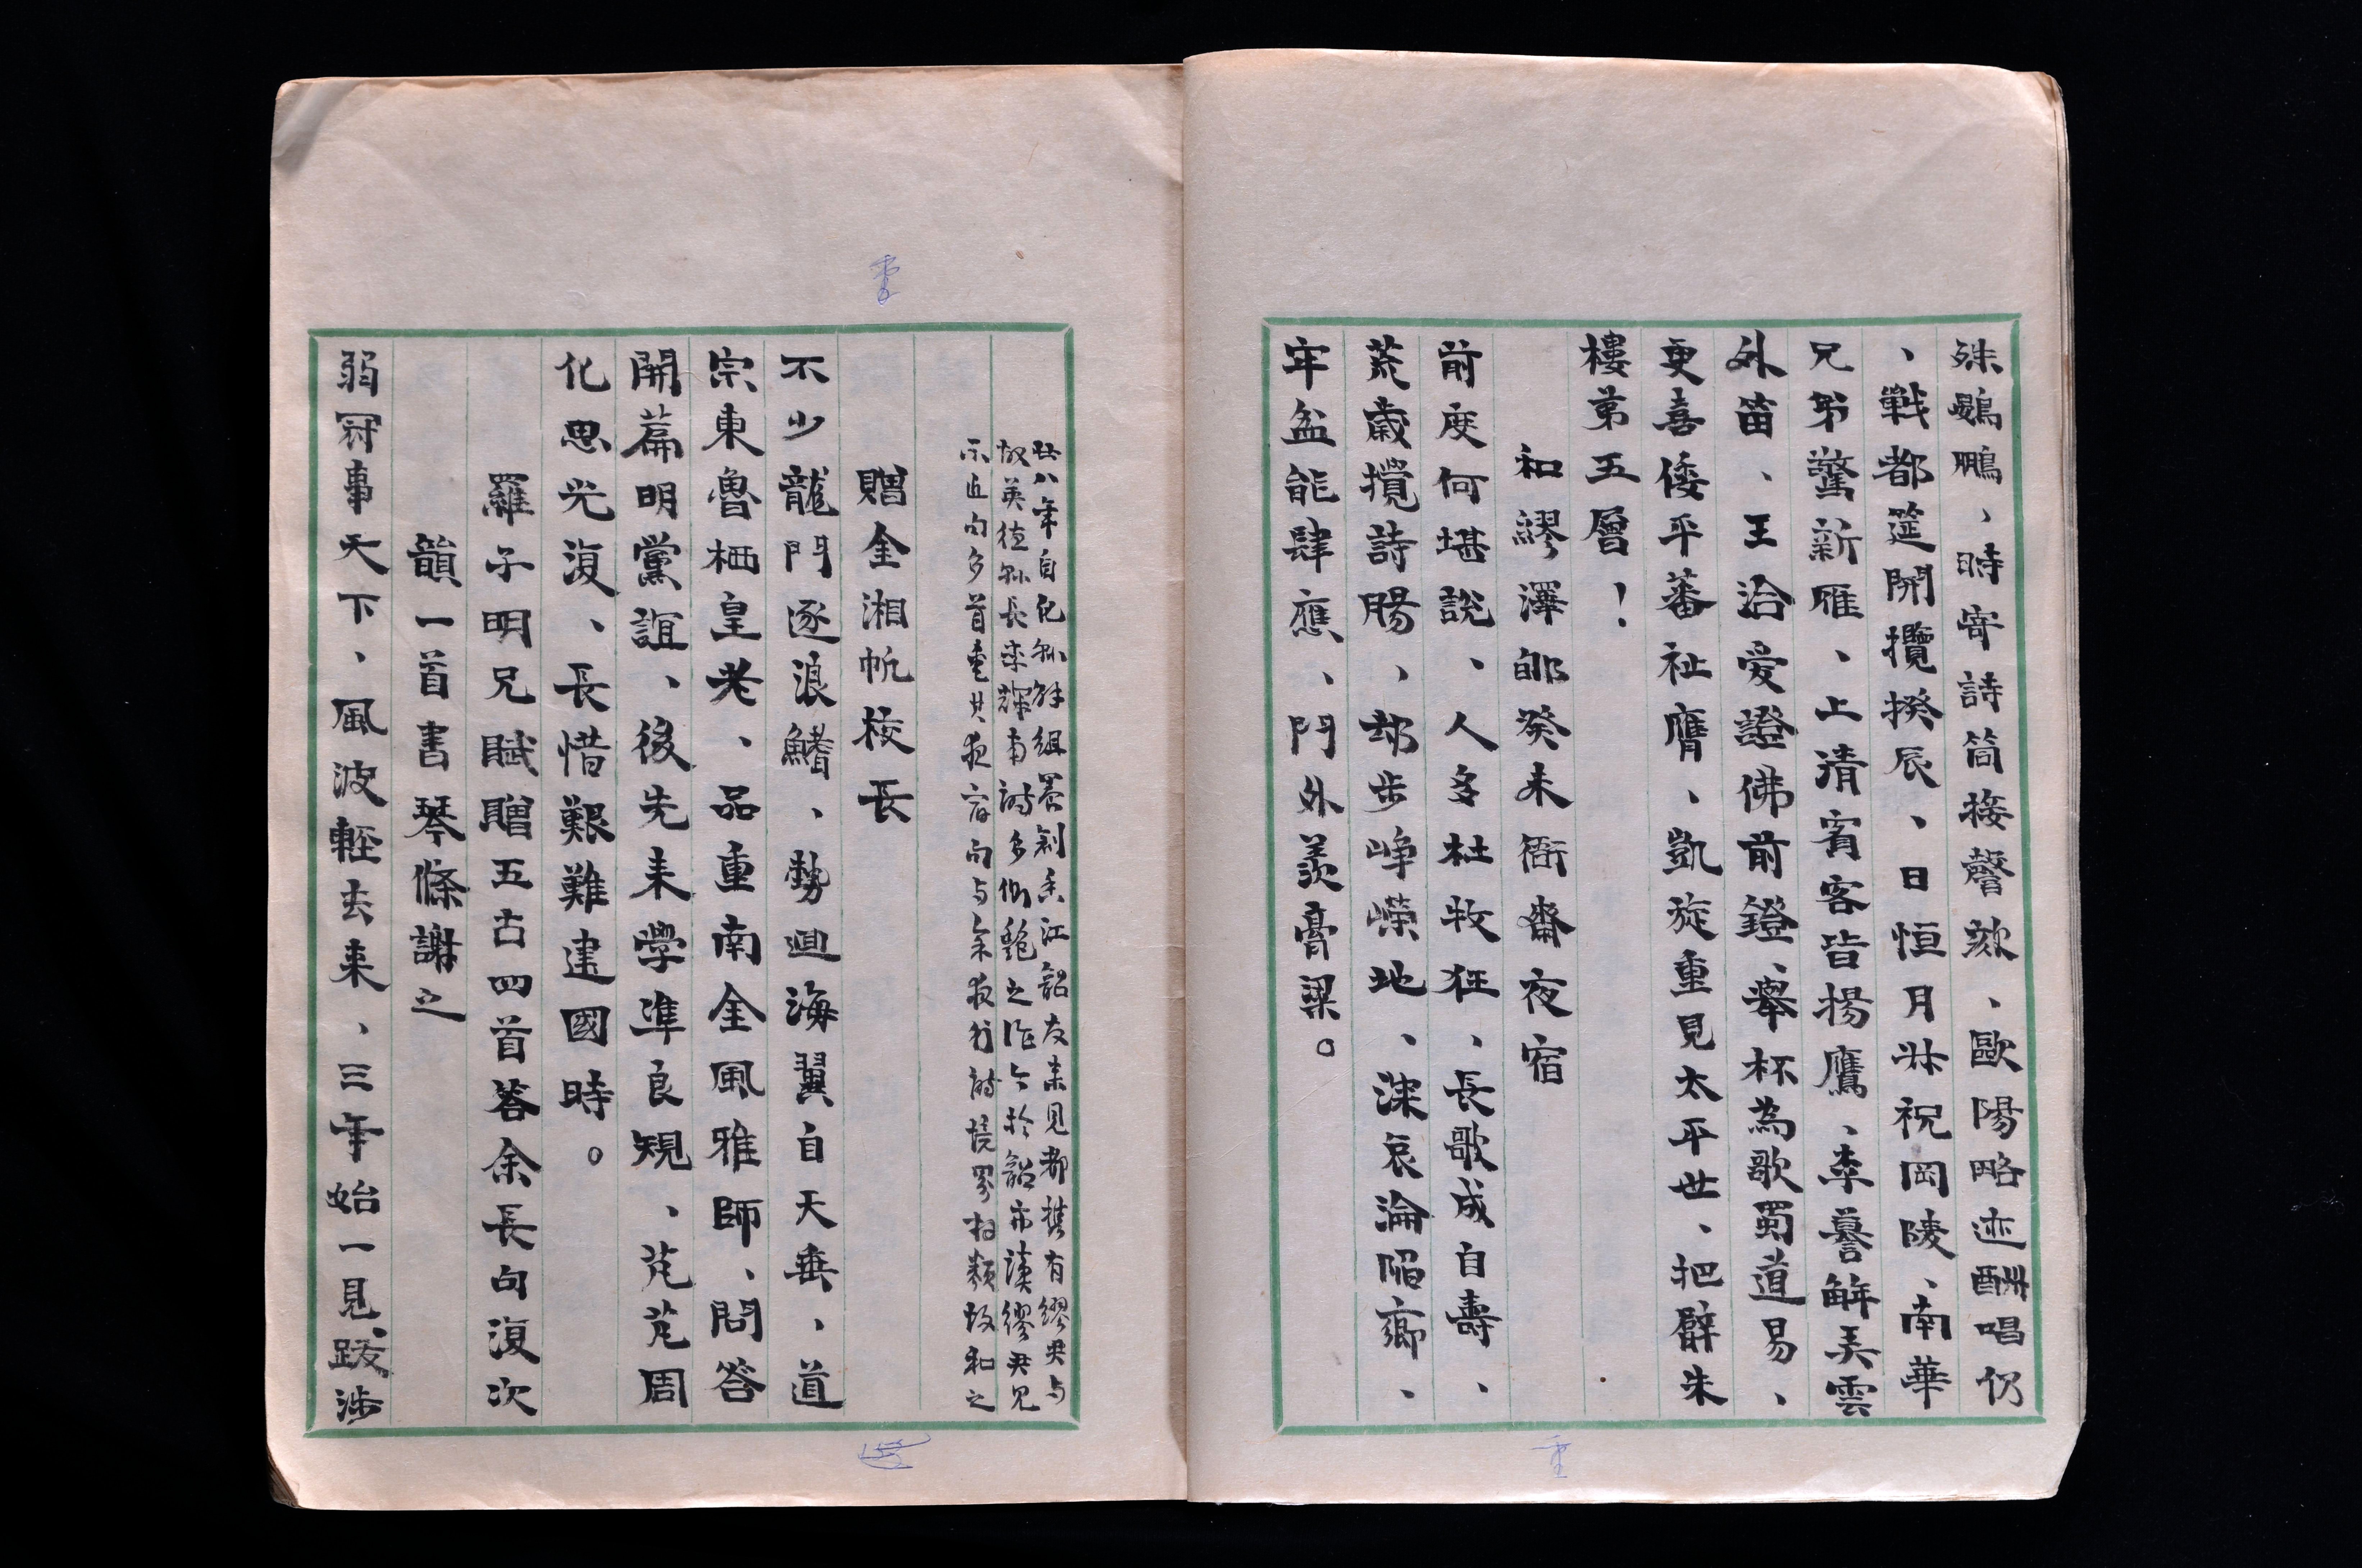 殊鷃鵬、時寄詩筒接謦欬、歐陽略迹酬唱仍
、戰都筵開攬揆辰、日恒月升祝岡陵、南華
兄弟驚新雁、上清宥客皆揚鷹、李謩解弄雲
外笛、王洽愛證佛前鐙、舉杯為歌蜀道易、
更喜倭平蕃祉膺、凱旋重見太平世、把臂朱
樓第五層！
和繆澤邮癸未衙齋夜宿
前度何堪說、人多杜牧狂、長歌成自壽、
荒歲攪詩腸、却步崢嶸地、深哀淪陷鄉、
牢盆能肆應、門外羨膏粱。
廿八年自化縣解組養疴香江韶友来見都攜有繆君与
故英德縣長李輝南詩多側艷之作今於韶市讀繆君見
示近句多首重其夜宿句与余夜行詩境畧相類故和之
贈金湘帆校長
不少龍門逐浪鰭、勢迴海翼自天垂、道
宗東魯栖皇老、品重南金風雅師、問答
開篇明黨誼、後先来學準良規、芃芃周
化思光復、長惜艱難建國時。
羅子明兄賦贈五古四首答余長句復次
韻一首書琴條謝之
弱冠事天下、風波輕去来、三年始一見、跋涉